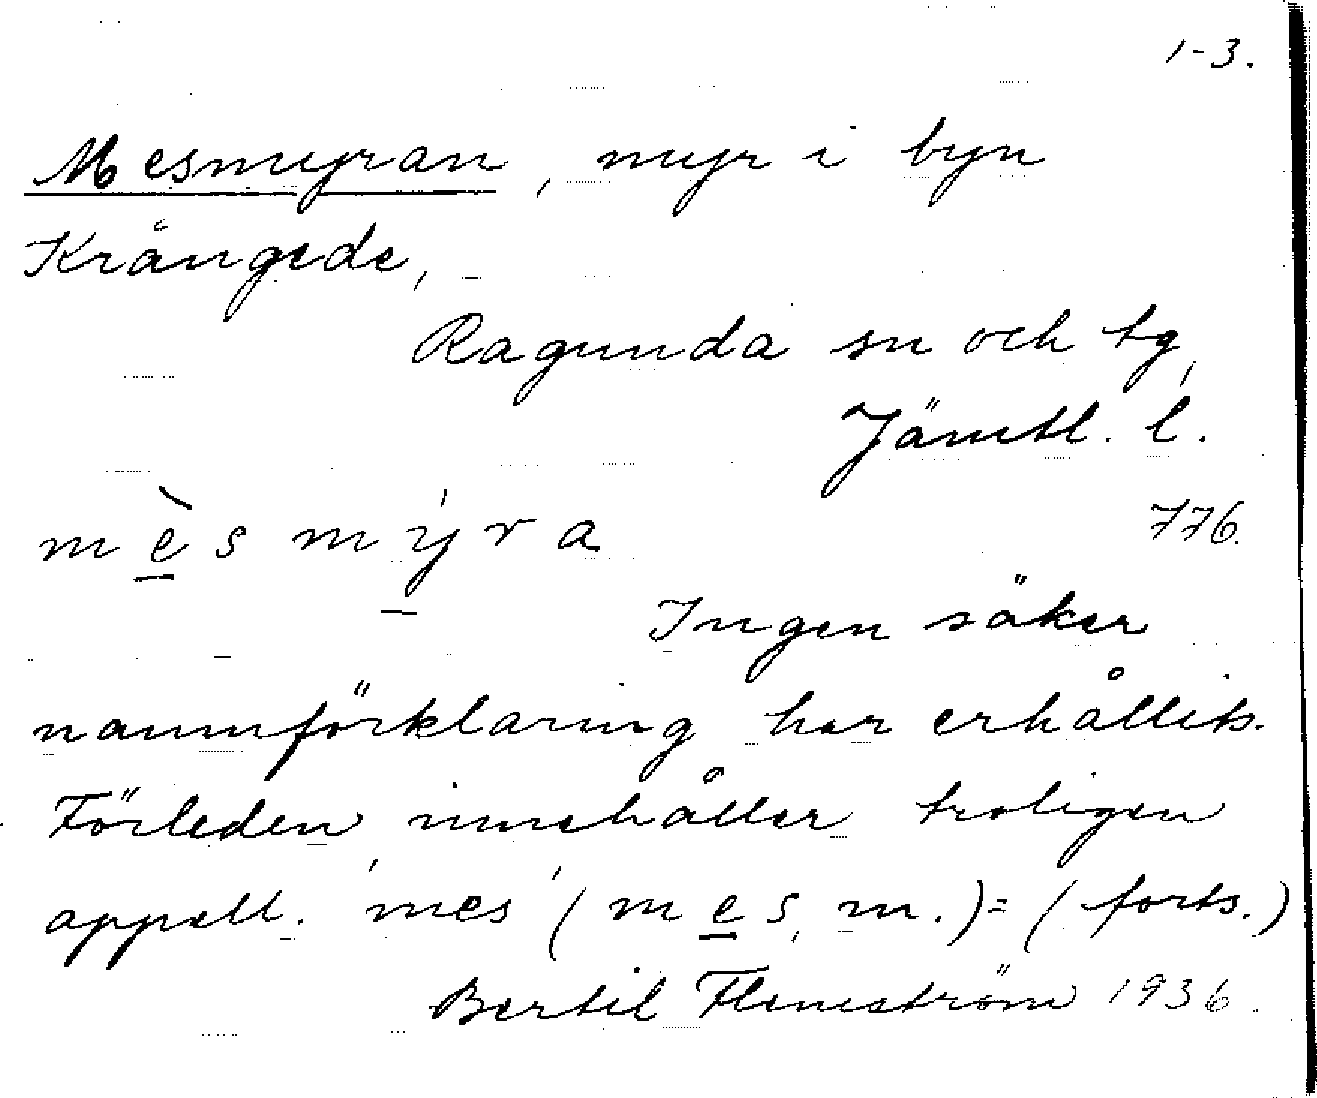 1-3.
Mesmyran, myr i byn
Krångede,
Ragunda sn och tg,
Jämtl. l.
mè̱smýra
776.
Ingen säker
namnförklaring har erhållits.
Förleden innehåller troligen
appell. 'mes' (me̱s, m.)= (forts.)
Bertil Flemström 1936.